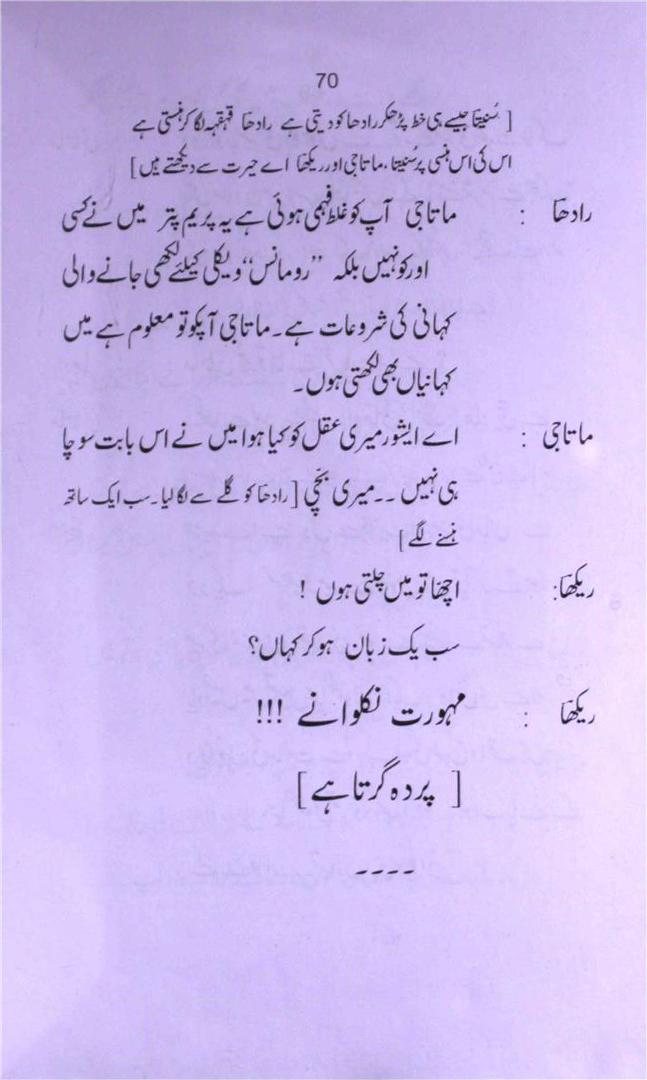 70
[ سُنیتا جیسے ہی خط پڑھکر رادھا کو دیتی ہے رادھا قہقہہ لگا کر ہنستی ہے
اس کی اس ہنسی پر سُنیتا ، ماتا جی اور ریکھا اے حیرت سے دیکھتے ہیں ]
رادھا : ماتا جی آپ کو غلط فہمی ہوئی ہے یہ پریم پتر میں نے کسی
اور کو نہیں بلکہ ”رومانس“ ویکلی کیلئے لکھی جانے والی
کہانی کی شروعات ہے۔ ماتا جی آپکو تو معلوم ہے میں
کہانیاں بھی لکھتی ہوں۔
ماتا جی : اے ایشور میری عقل کو کیا ہوا میں نے اس بابت سوچا
ہی نہیں ۔۔ میری بچّی [ رادھا کو گلے سے لگا لیا۔ سب ایک ساتھ
ہنسنے لگے ]
ریکھا: اچھا تو میں چلتی ہوں !
سب یک زبان ہو کر کہاں؟
ریکھا : مہورت نکلوانے !!!
[ پردہ گرتا ہے ]
۔۔۔۔